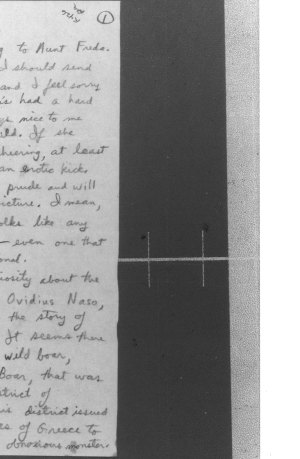 ①
g to Aunt Freda.
I should send
and I feel sorry
's had a hard
ys nice to me
ld. If she
heering, at least
an erotic kick,
prude and will
icture. I mean,
olks like any
— even one that
nal.
iosity about the
Ovidius Naso,
the story of
It seems there
wild boar,
Boar, that was
strict of
is district issued
es of Greece to
obnoxious monster.